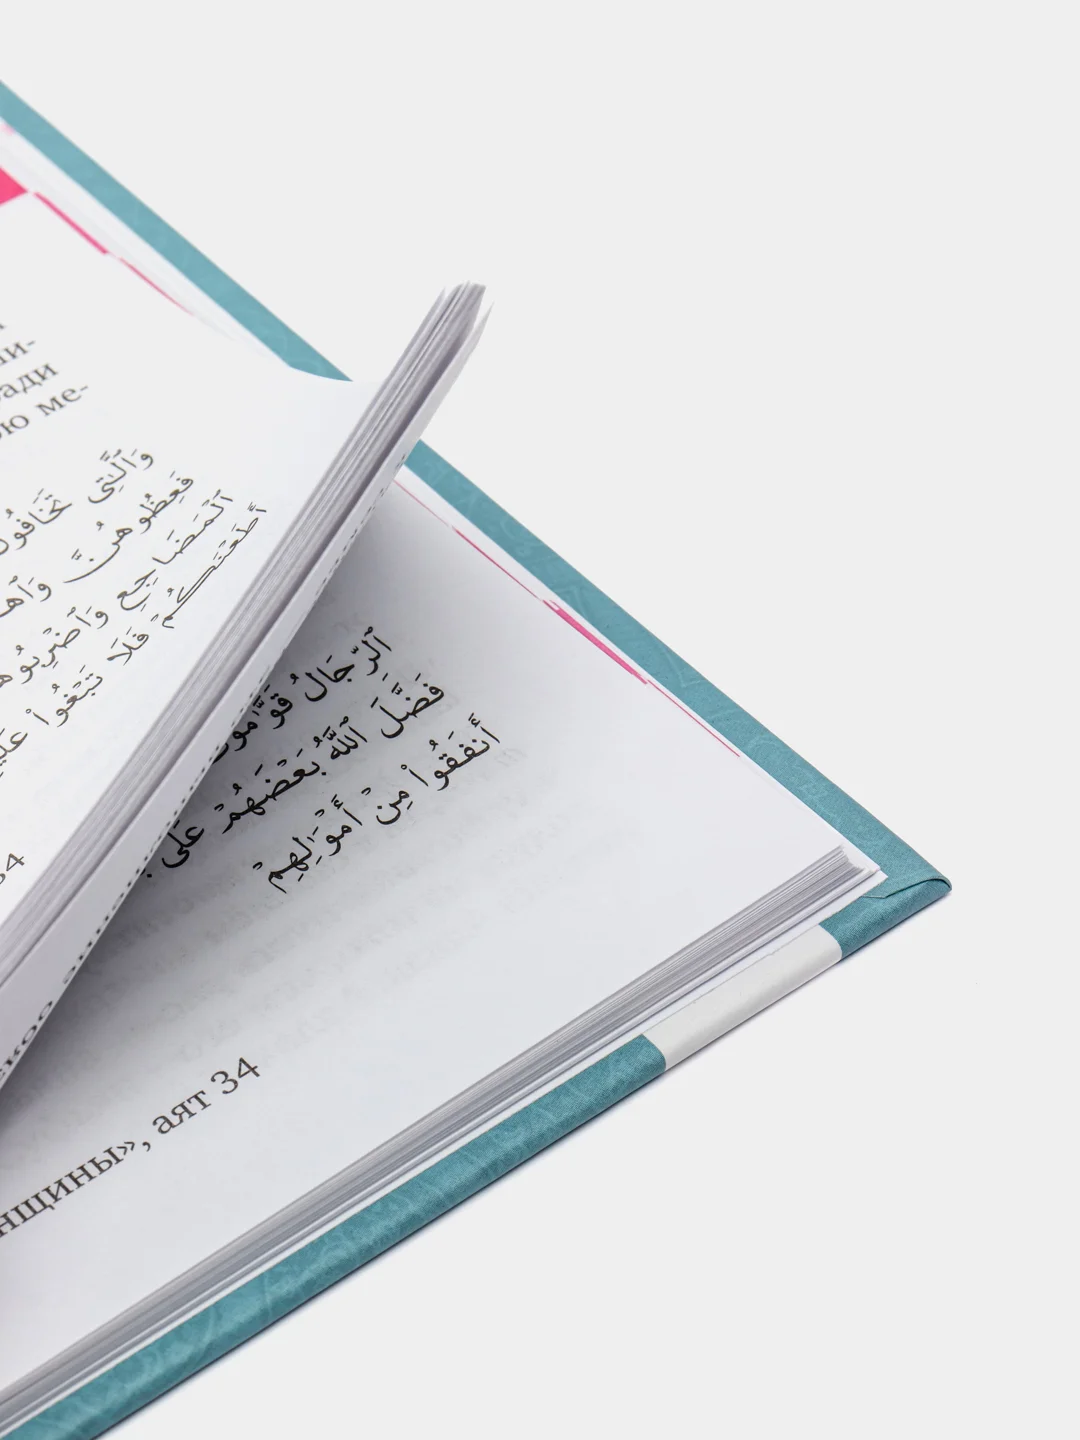 ши-
ради
ою ме-
وَٱلَّٰتِى تَخَافُونَ
فَعِظُوهُنَّ وَٱهۡ
ٱلۡمَضَاجِعِ وَٱضۡرِبُوه
أَطَعۡنَكُمۡ فَلَا تَبۡغُواْ عَلَي
34
ٱلرِّجَالُ قَوَّٰمُونَ
فَضَّلَ ٱللَّهُ بَعۡضَهُمۡ عَلَىٰ
أَنفَقُواْ مِنۡ أَمۡوَٰلِهِمۡ
нщины», аят 34